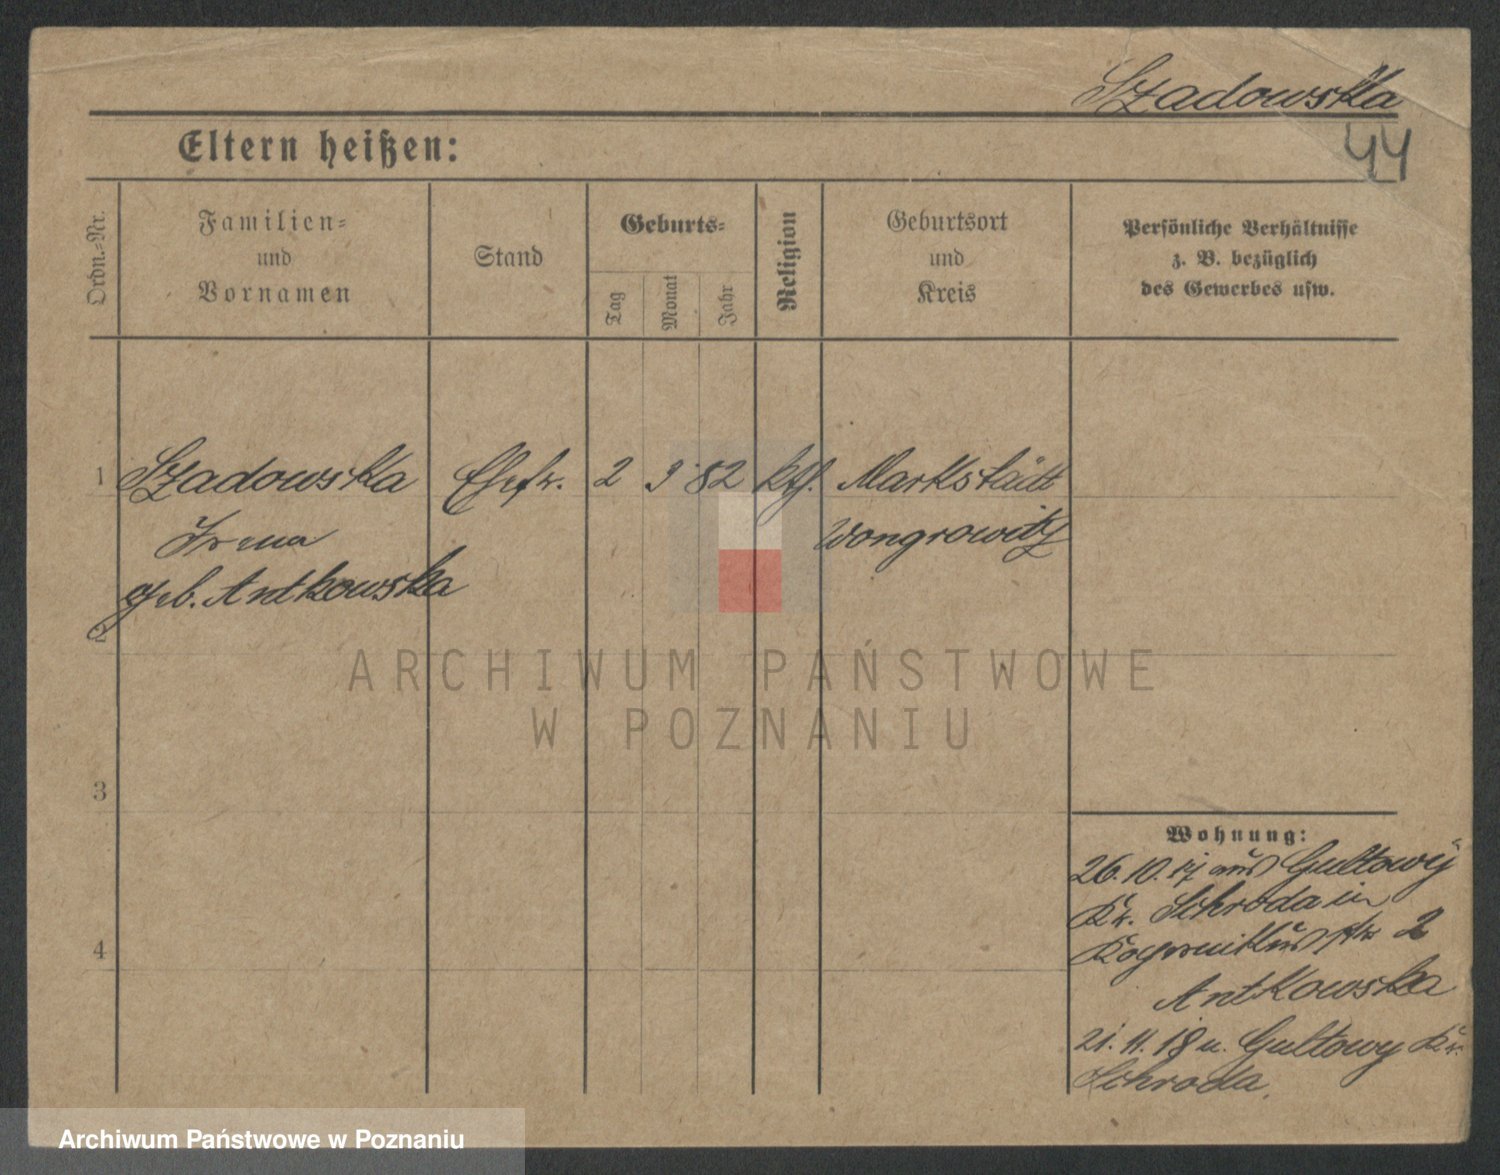 Szadowska
44
Eltern heißen:
Ordn.-Nr.
Familien-
und
Vornamen
Stand
Geburts-
Tag
Monat
Jahr
Religion
Geburtsort
und
Kreis
Persönliche Verhältnisse
z. B. bezüglich
des Gewerbes usw.
1 Szadowska Ehefr. 2 9 82 kth. Markstädt
Irena Wongrowitz
geb. Antkowska
2
3
4
Wohnung:
26.10.17 aus Gultowy
Kr. Schroda in
2
Antkowska
21.11.18 n. Gultowy Kr.
Schroda.
ARCHIWUM PAŃSTWOWE
W POZNANIU
Archiwum Państwowe w Poznaniu